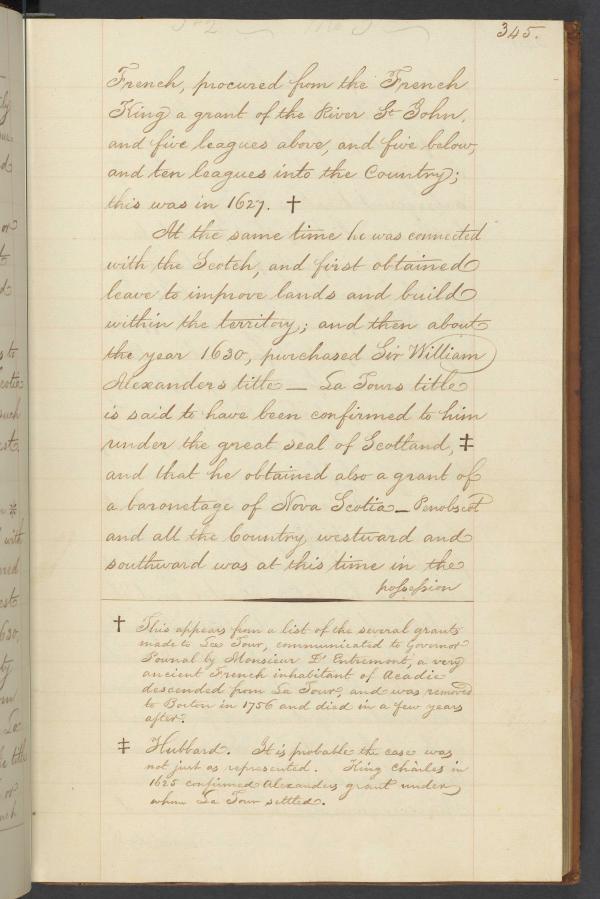 345.
French, procured from the French
King a grant of the River St John,
and five leagues above, and five below,
and ten leagues into the Country;
this was in 1627. †
At the same time he was connected
with the Scotch, and first obtained
leave to improve lands and build
within the territory; and then about
the year 1630, purchased Sir William
Alexanders title — La Tours title
is said to have been confirmed to him
under the great seal of Scotland, ‡
and that he obtained also a grant of
a baronetage of Nova Scotia — Penobscot
and all the Country westward and
southward was at this time in the
possession
† This appears from a list of the several grants
made to La Tour, communicated to Governor
Pownal by Monsieur D'Entremont, a very
ancient French inhabitant of Acadie
descended from La Tour, and was removed
to Boston in 1756 and died in a few years
after.
‡ Hubbard. It is probable the case was
not just as represented. King Charles in
1625 confirmed Alexanders grant under
whom La Tour settled.